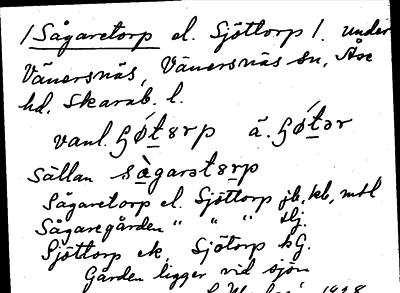 /Sågaretorp el. Sjöttorp/. under
Vänersnäs, Vänersnäs sn, Åse
hd. Skarab. l.
vanl.
Sällan
Sågaretorp el. Sjöttorp jb, kb, mtl
Sågaregården " " " dlj.
Sjöttorp ek. Sjötorp hG.
Gården ligger vid sjön